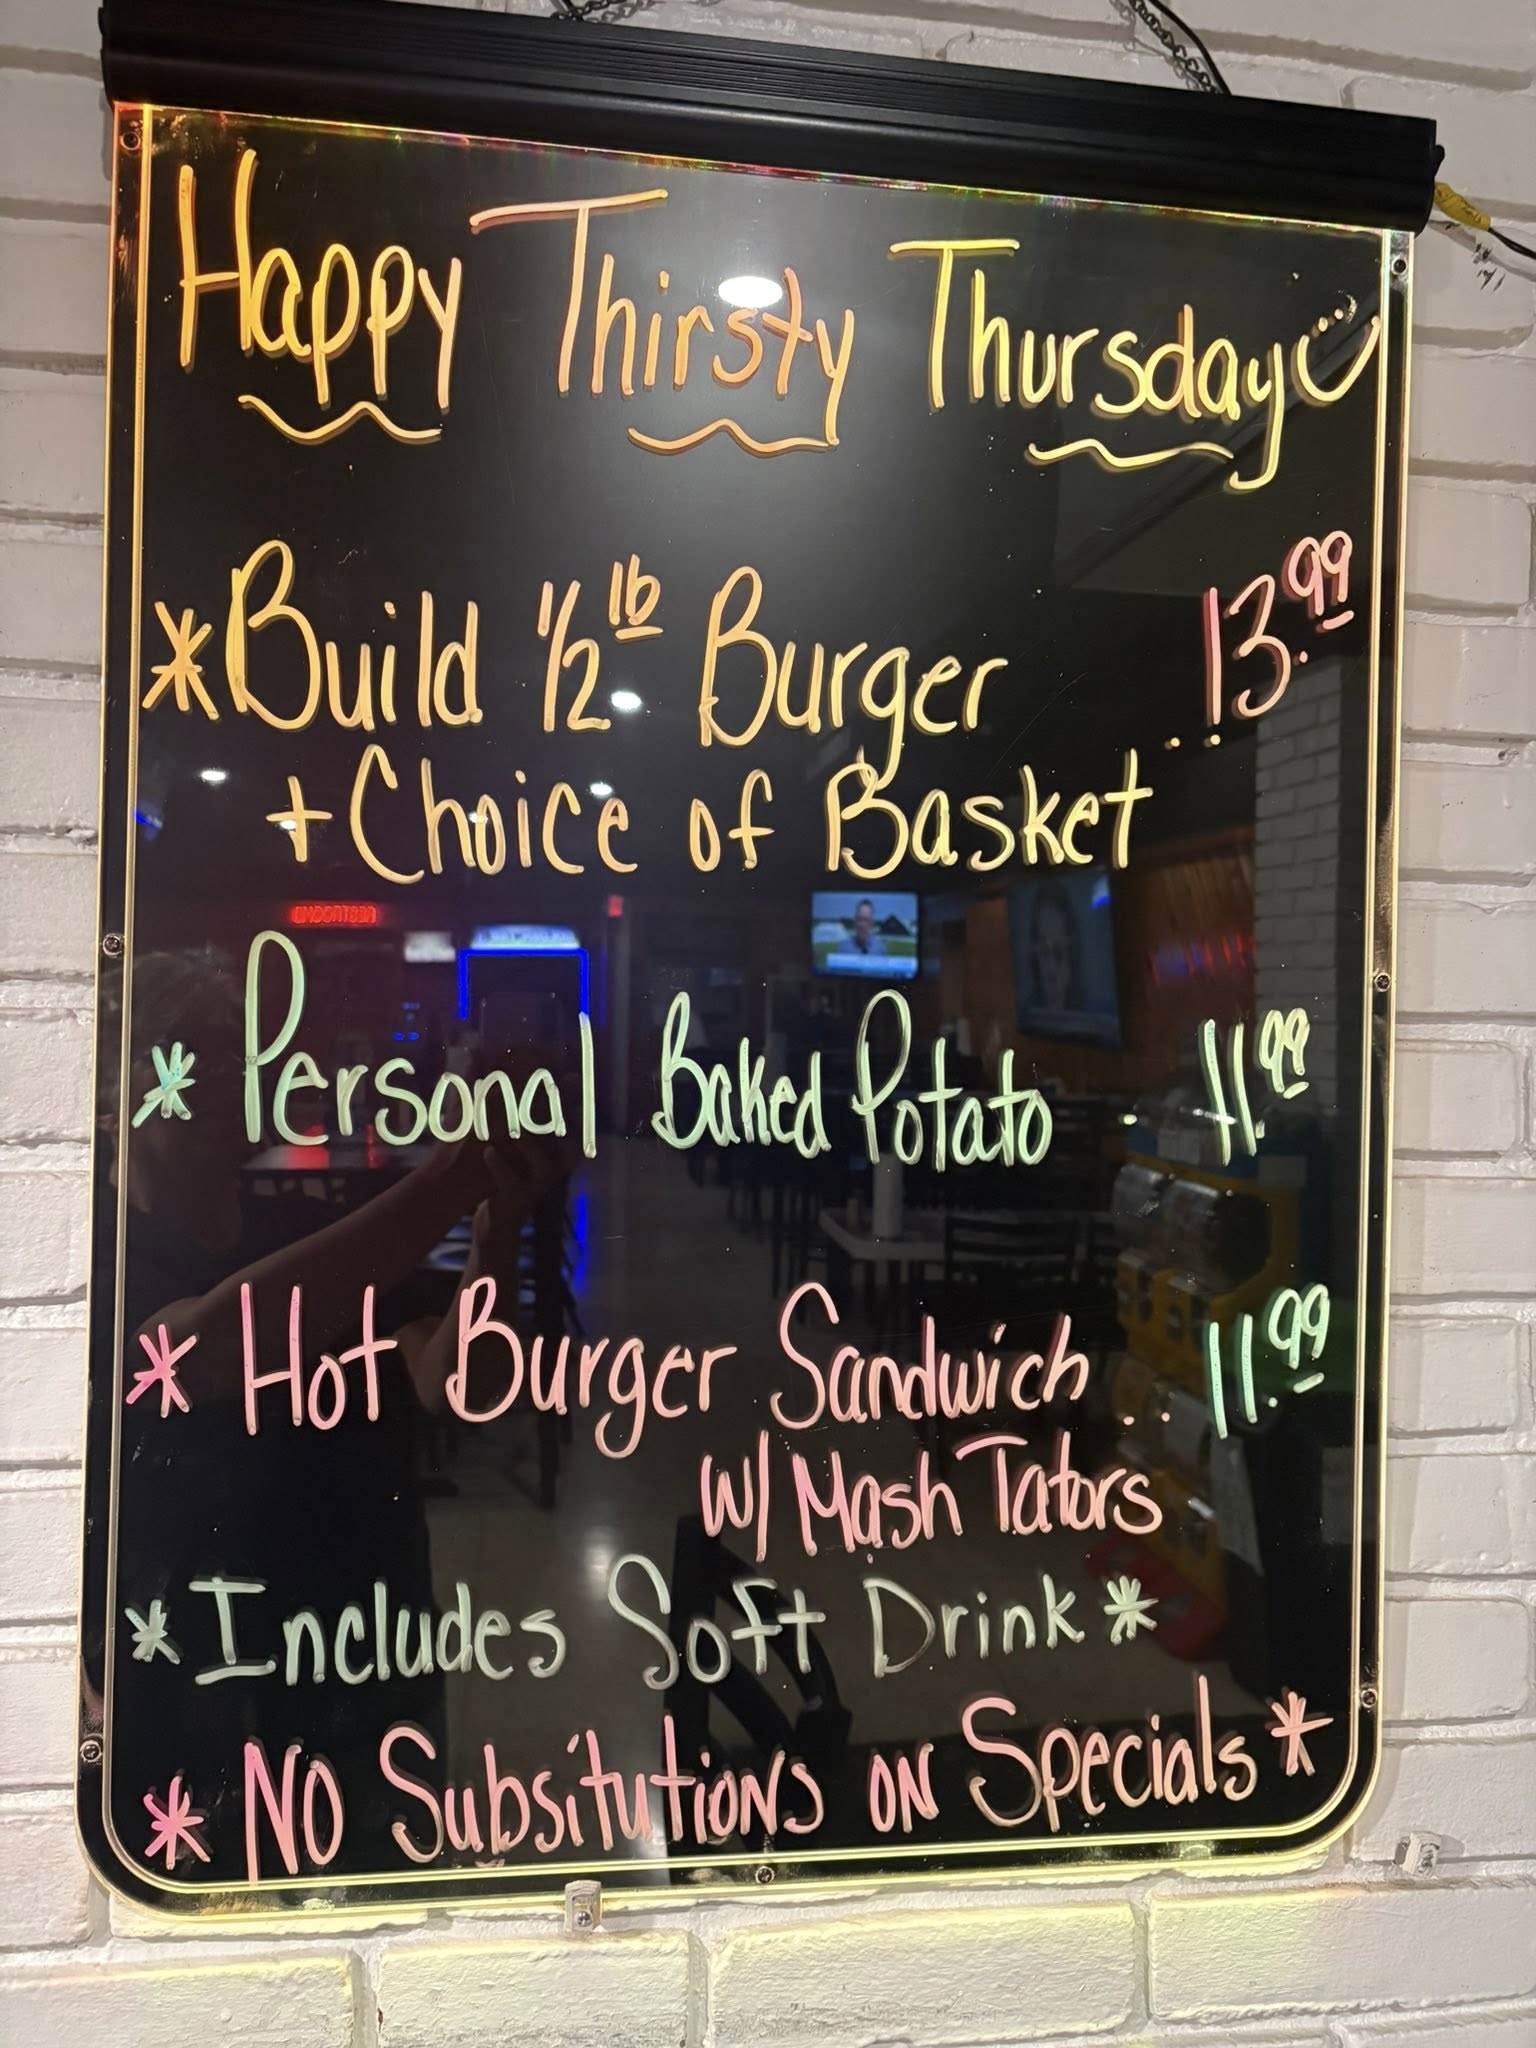 Happy Thirsty Thursday
*Build 1/2 lb Burger .. 13.99
+ Choice of Basket
* Personal Baked Potato . 11.99
* Hot Burger Sandwich ... 11.99
w/ Mash Tators
*Includes Soft Drink*
*No Subsitutions on Specials*